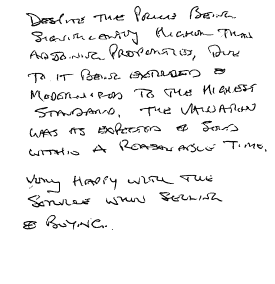 DESPITE THE PRICE BEING
SIGNIFICANTLY HIGHER THAN
ADJOINING PROPERTIES, DUE
TO IT BEING EXTENDED &
MODERNISED TO THE HIGHEST
STANDARD. THE VALUATION
WAS AS EXPECTED & SOLD
WITHIN A REASONABLE TIME.
VERY HAPPY WITH THE
SERVICE WHEN SELLING
& BUYING.